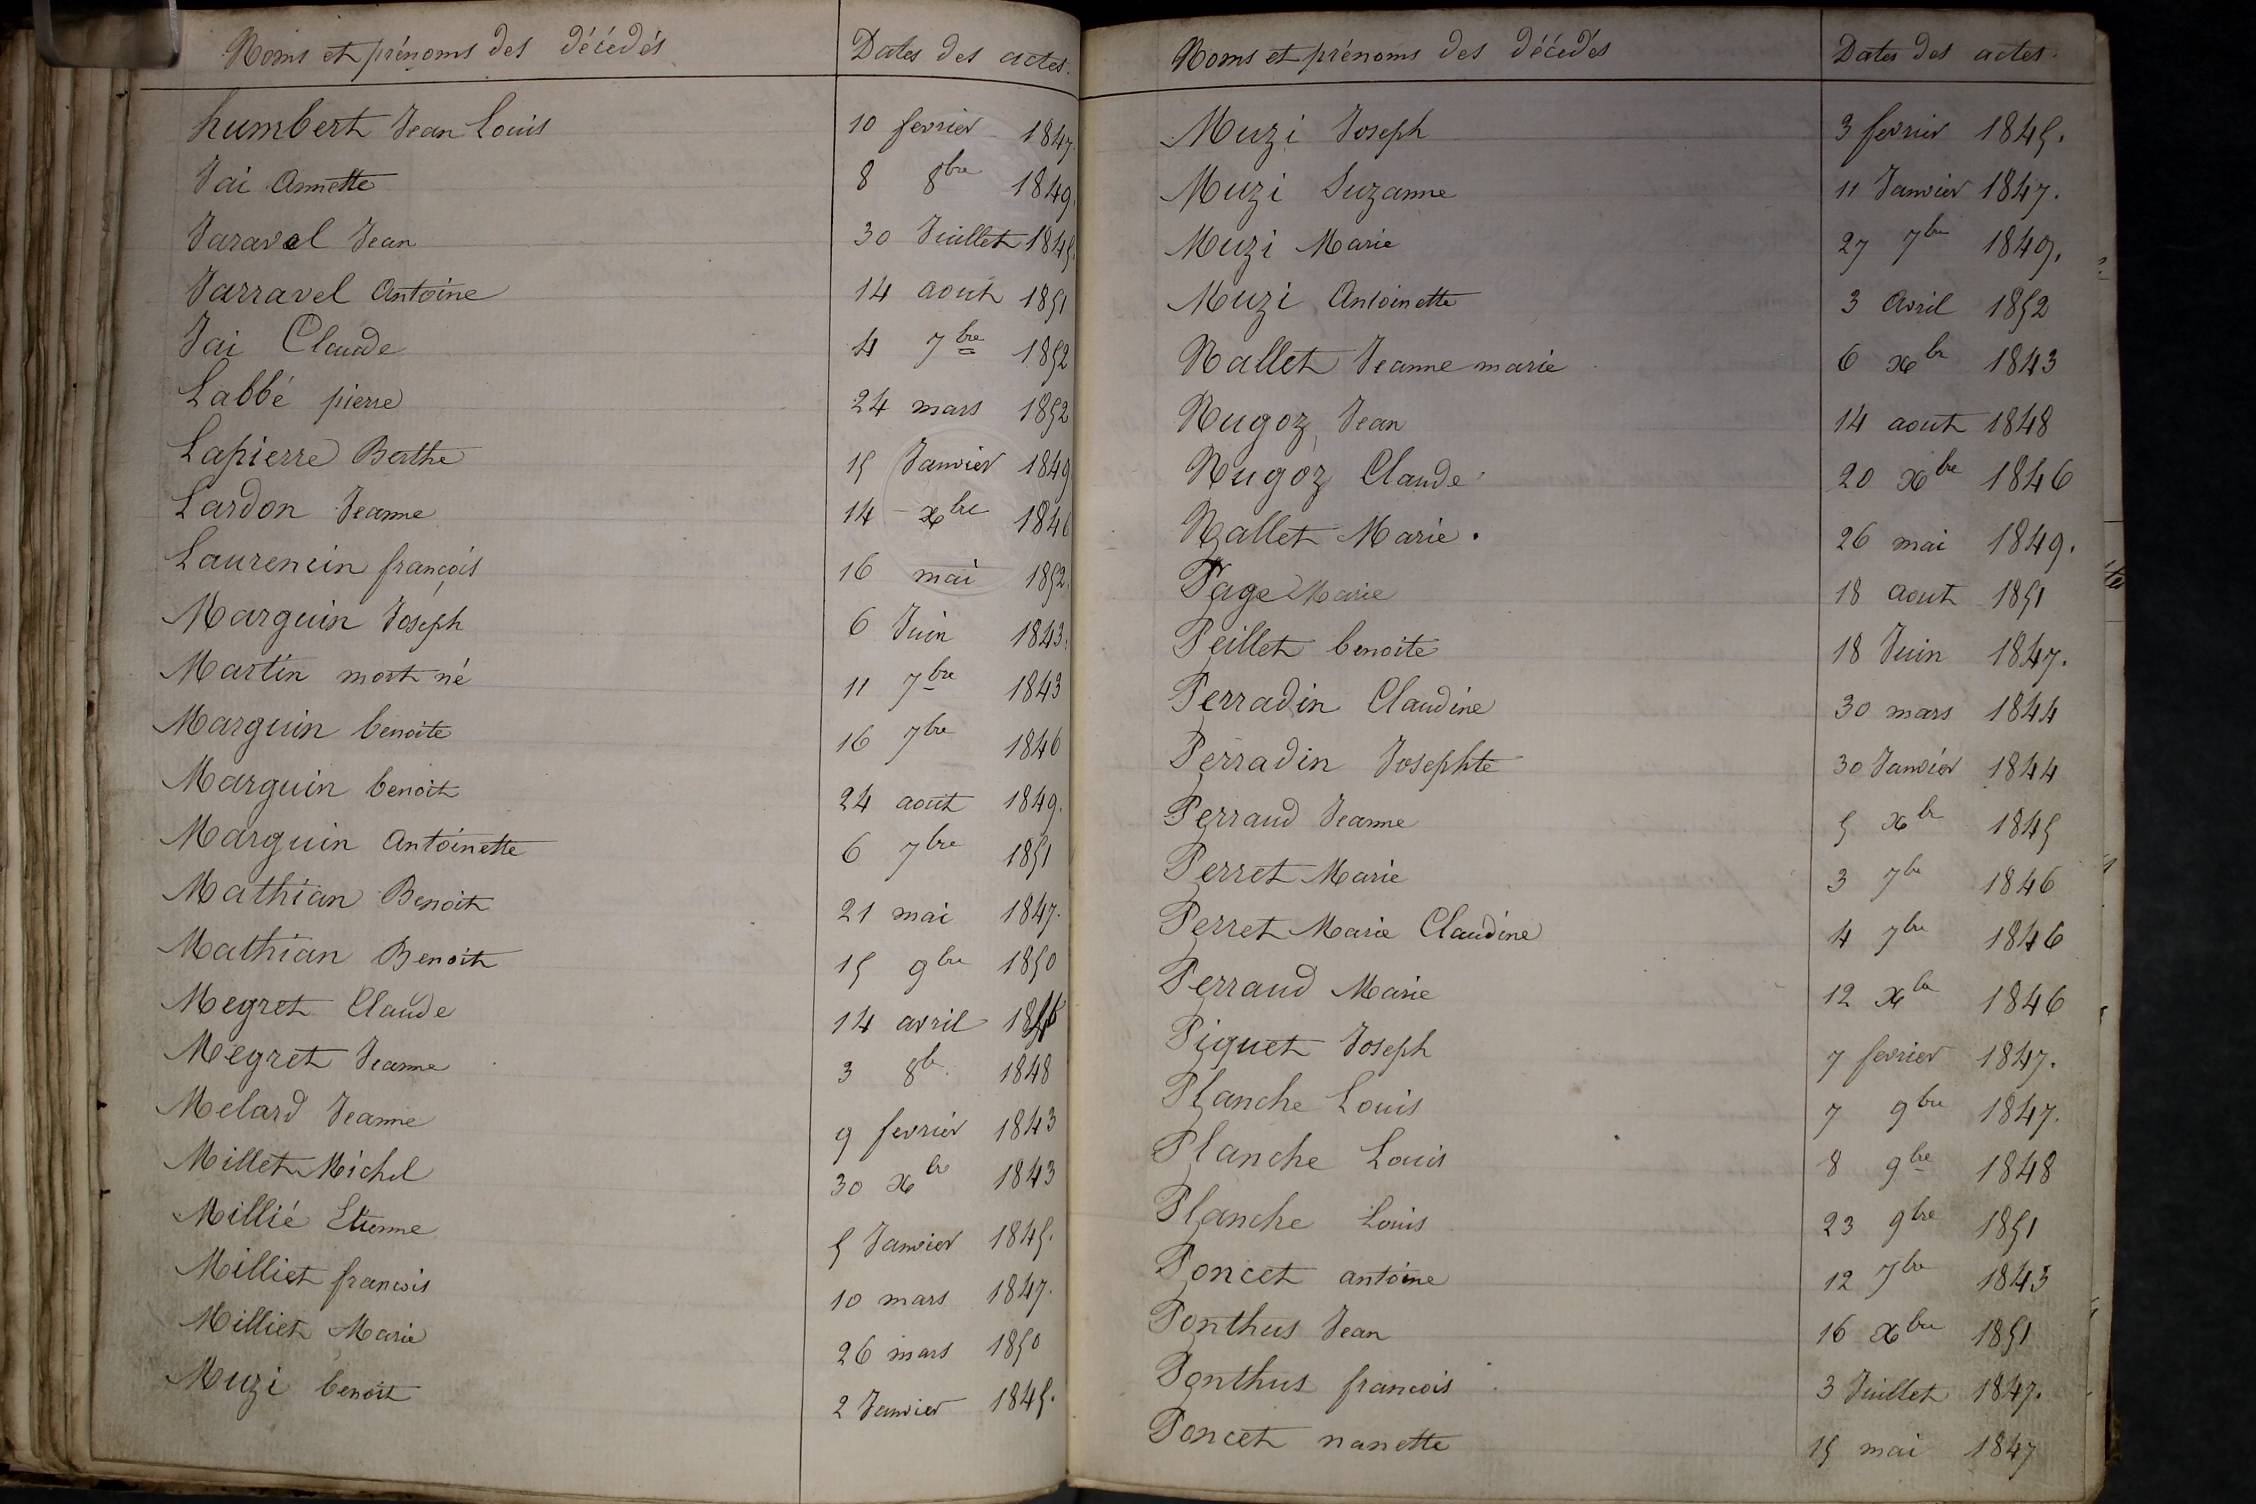 Noms et prénoms des décédés Dates des actes.
humbert Jean Louis 10 fevrier 1847.
Jai Annette 8 8bre 1849.
Jaravel Jean 30 Juillet 1845.
Jarravel Antoine 14 aout 1851
Jai Claude 4 7bre 1852
Labbé pierre 24 mars 1852
Lapierre Berthe 15 Janvier 1849
Lardon Jeanne 14 xbre 1846
Laurencin françois 16 mai 1852.
Marguin Joseph 6 Juin 1843.
Martin mort né 11 7bre 1843
Marguin benoite 16 7bre 1846
Marguin benoit 24 aout 1849.
Marguin Antoinette 6 7bre 1851
Mathian Benoit 21 mai 1847.
Mathian Benoit 15 9bre 1850
Megret Claude 14 avril
Megret Jeanne 3 8b. 1848
Melard Jeanne 9 fevrier 1843
Millet Michel 30 xbre 1843
Millié Etienne 5 Janvier 1845.
Milliet francois 10 mars 1847.
Milliet Marie 26 mars 1850
Muzi benoit 2 Janvier 1845.
Noms et prénoms des décédés Dates des actes.
Muzi Joseph 3 fevrier 1845.
Muzi Suzanne 11 Janvier 1847.
Muzi Marie 27 7bre 1849.
Muzi Antoinette 3 Avril 1852
Nallet Jeanne marie 6 xbr 1843
Nugoz Jean 14 aout 1848
Nugoz Claude 20 xbre 1846
Nallet Marie. 26 mai 1849.
Page Marie 18 aout 1851
Peillet benoite 18 Juin 1847.
Perradin Claudine 30 mars 1844
Perradin Josephte 30 Janvier 1844
Perraud Jeanne 5 xbr 1845
Perret Marie 3 7br 1846
Perret Marie Claudine 4 7bre 1846
Perraud Marie 12 xbr 1846
Piquet Joseph 7 fevrier 1847.
Planche Louis 7 9bre 1847.
Planche Louis 8 9bre 1848
Planche Louis 23 9bre 1851
Poncet antoine 12 7bre 1843
Ponthus Jean 16 xbre 1851
Ponthus francois 3 Juillet 1847.
Poncet nanette 15 mai 1847